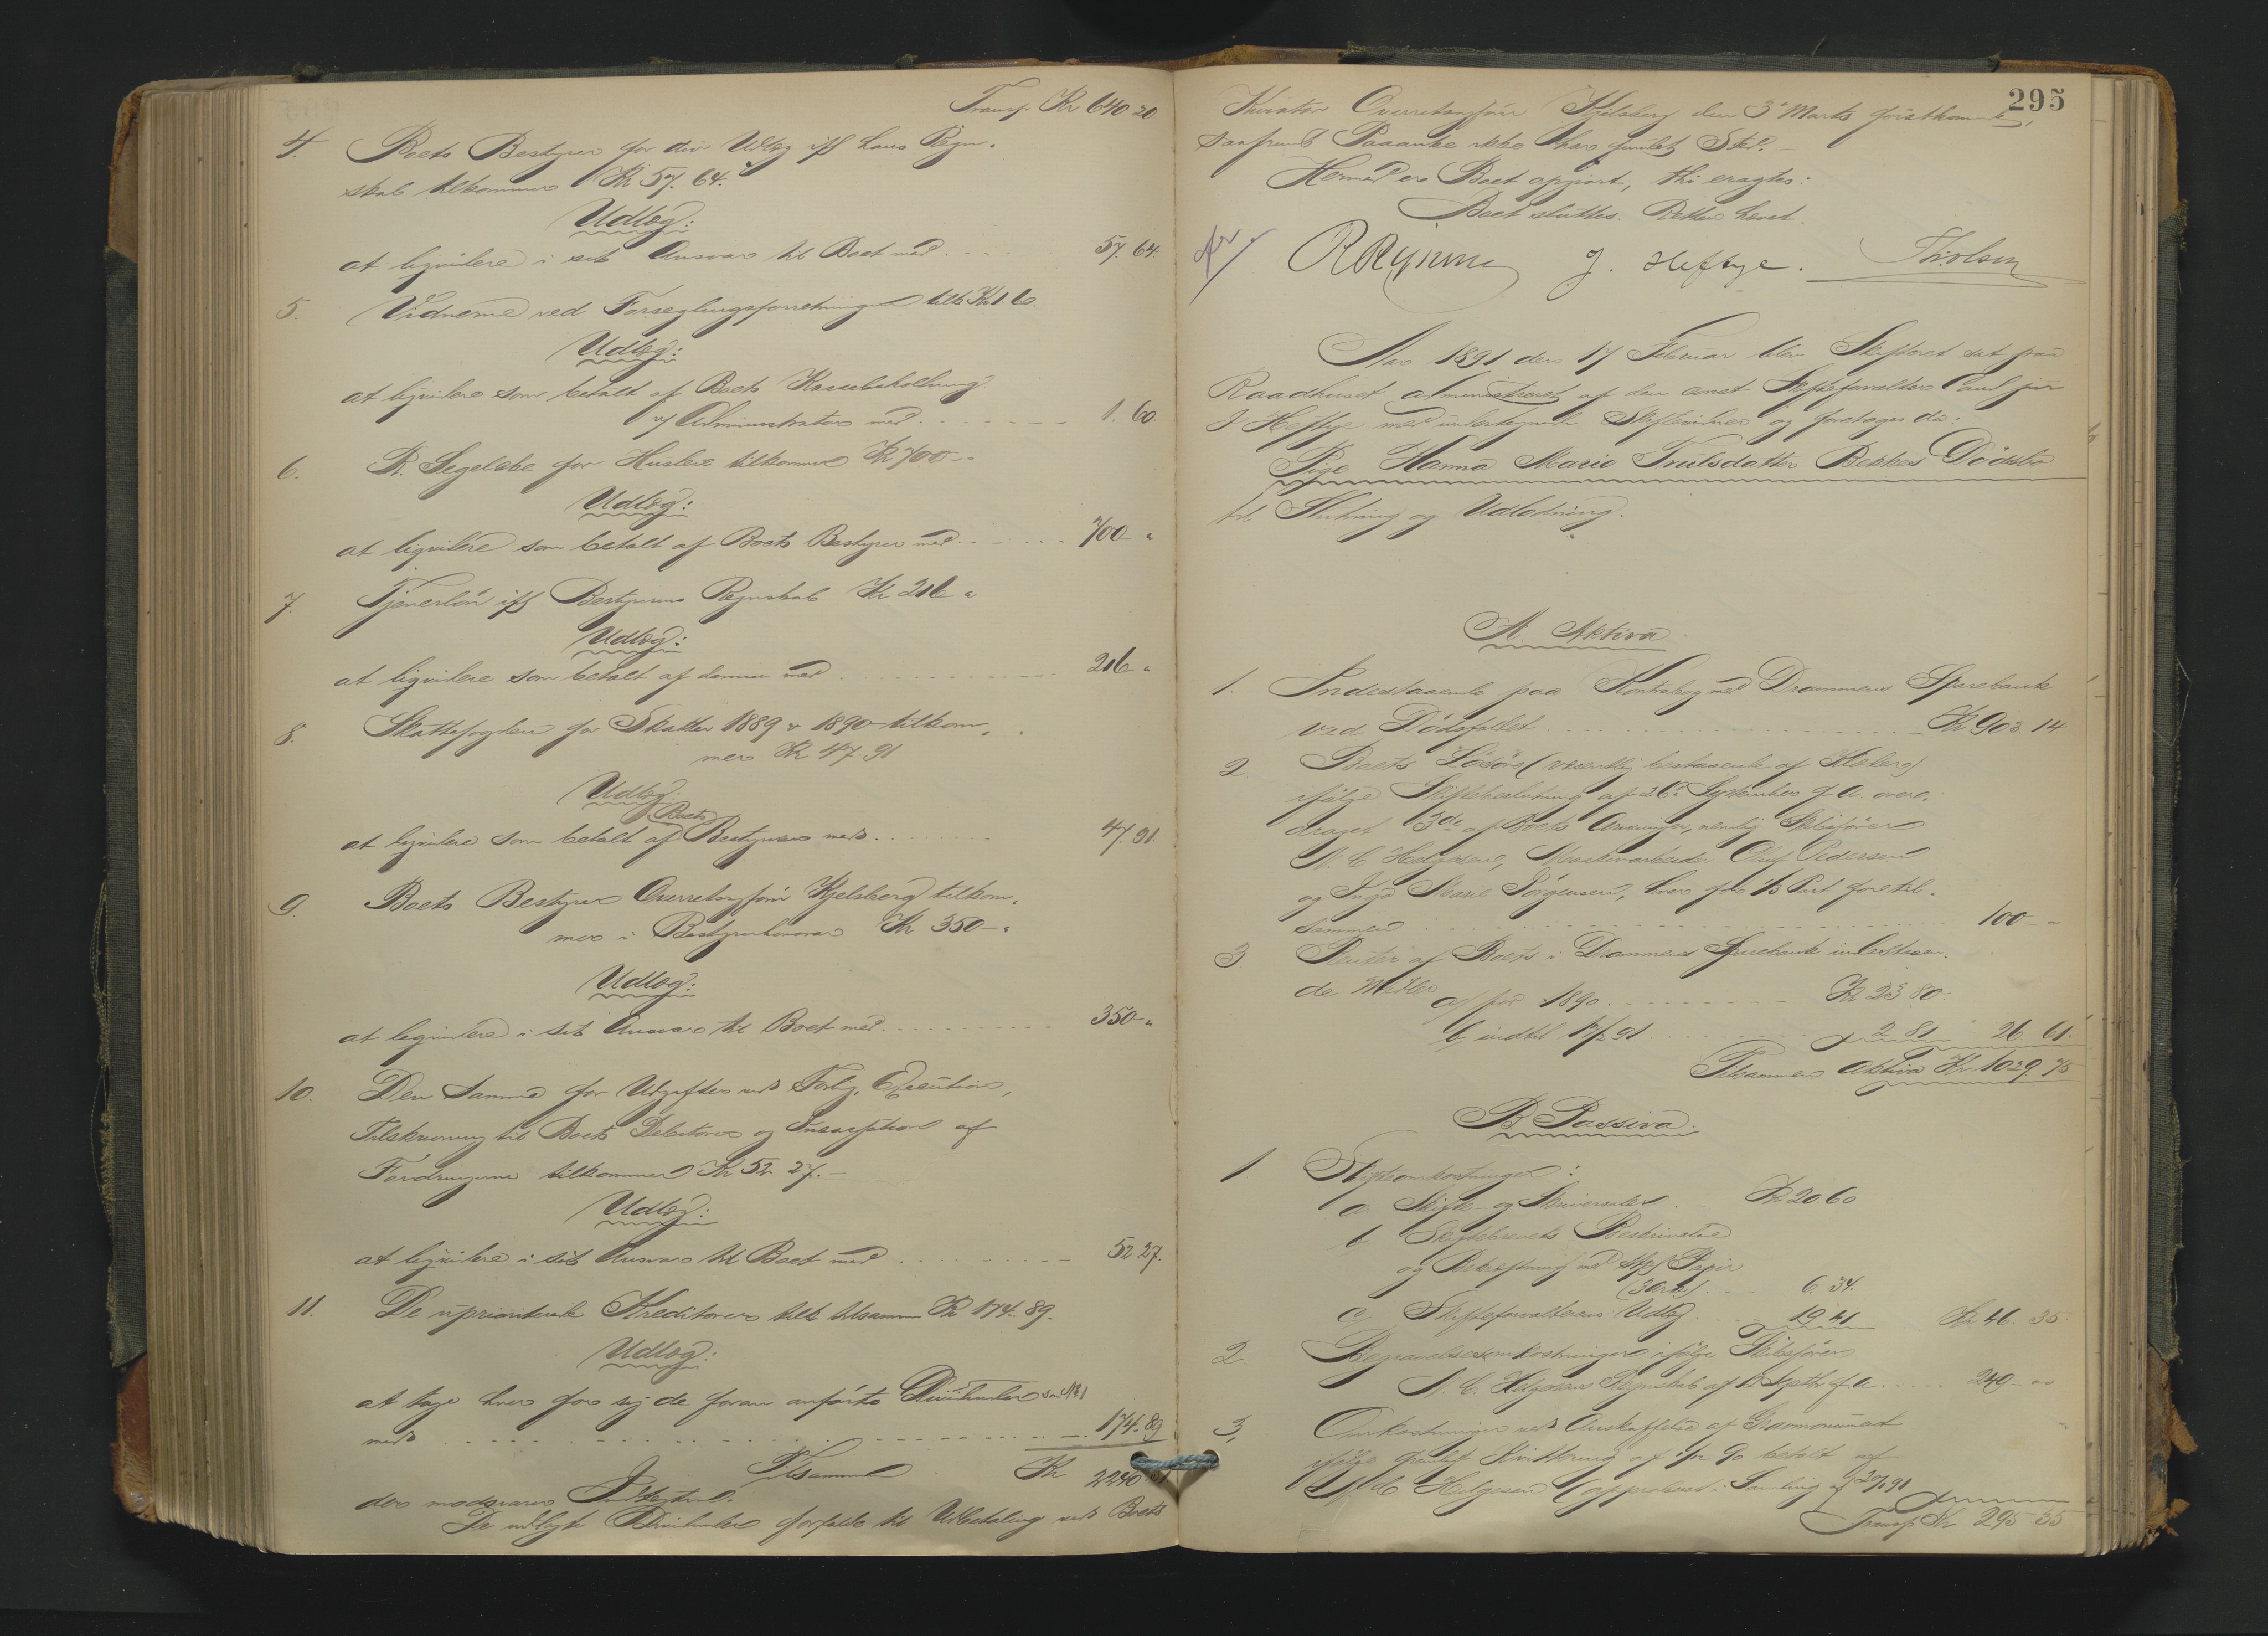 Transp. Kr 640 20
4. Boets Bestyrer for div Udlæg iflg hans Regn-
skab tilkommer Kr 57. 64.
Udlæg:
at liqvidere i sit Ansvar til Boet med 57. 64.
5. Vidnerne ved Forseglingsforretningen tilk Kr 1 60.
Udlæg:
at liqvidere som betalt af Boets Kassebeholdning
v/ Administrator med 1. 60
6. R. Segelcke for Husleie tilkommer Kr 700 - "
Udlæg:
at liqvidere som betalt af Boets Bestyrer med 700 "
7. Tjenerløn iflg Bestyrerens Regnskab Kr 216 "
Udlæg:
at liqvidere som betalt af denne med 216 "
8. Skattefogden for Skatter 1889 & 1890 tilkom-
mer Kr 47. 91
Udlæg:
Boets
at liqvidere som betalt af Bestyrer med 47. 91
9. Boets Bestyrer Overretssagfører Kjelsberg tilkom-
mer i Bestyrerhonorar Kr 350 - "
Udlæg:
at liqvidere i sit Ansvar til Boet med 350 - "
10. Den Samme for Udgifter ved Forlig, Execution,
Tilskrivning til Boets Debitorer og Incassation af
Fordringerne tilkommer Kr 52. 27. -
Udlæg:
at liqvidere i sit Ansvar til Boet med 52 27.
11. De uprioriterede Kreditorer tilk tilsammen Kr 174. 89.
Udlæg:
at tage hver for sig de foran anførte Dividender
med 174. 89
Tilsammen Kr 2240
der modsvarer Indtægterne.
De udlagte Dividender forfalde til Udbetaling ved Boets
295
Kurator Overretssagfører Kjelsberg den 3' Marts førstkommende,
saafremt Paaanke ikke har fundet Sted. -
Hermed er Boet opgjort, thi eragtes:
Boet sluttes. Retten hævet.
J. Heftye. Th. Olsen
Aar 1891 den 17 Februar blev Skifteret sat paa
Raadhuset administreret af den const Skifteforvalter Cand jur
J Heftye med undertegnede Skiftevidner og foretoges da:
Pige Hanna Marie Trulsdatter Bekkes Dødsbo
til Slutning og Udlodning.
A. Aktiva.
1. Indestaaende paa Kontrabog med Drammens Sparebank
ved Dødsfaldet Kr 903. 14
2. Boets Løsøre (væsentlig bestaaende af Klæder)
ifølge Skiftebeslutning af 26' September f. A. over-
draget 3de af Boets Arvinger, nemlig Skibsfører
N. C Helgesen, Maskinarbeider Oluf Pedersen
og Inga Marie Jørgensen, hver for 1/3 Part for til-
sammen 100 - "
3. Renter af Boets i Drammens Sparebank indestaaen-
de Midler a/ for 1890 Kr 23 80
b/ indtil 17/2 91 2 81 26. 61.
Tilsammen Aktiva Kr 1029. 75
B Passiva.
1. Skifteomkostninger:
a. Skifte- og Skriversalær Kr 20 60
b Skiftebrevets Beskrivelse
og Bekræftning med stpl Papir
(3 Ark) 6. 34.
c Skifteforvalterens Udlæg 19 41 Kr. 46. 35.
2. Begravelsesomkostninger ifølge Skibsfører
N. C. Helgesens Regnskab af Septbr f. A. 249 - "
3, Omkostninger ved Anskaffelse af Gravmonument
ifølge Kvittering af 90 betalt af
N C Helgesen (approberet i Samling af
Transp Kr 295 35